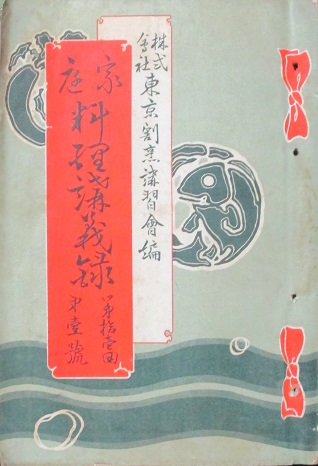 株式
會社
東京割烹講習會編
家庭
料理講義録
第拾壹回
第壹號